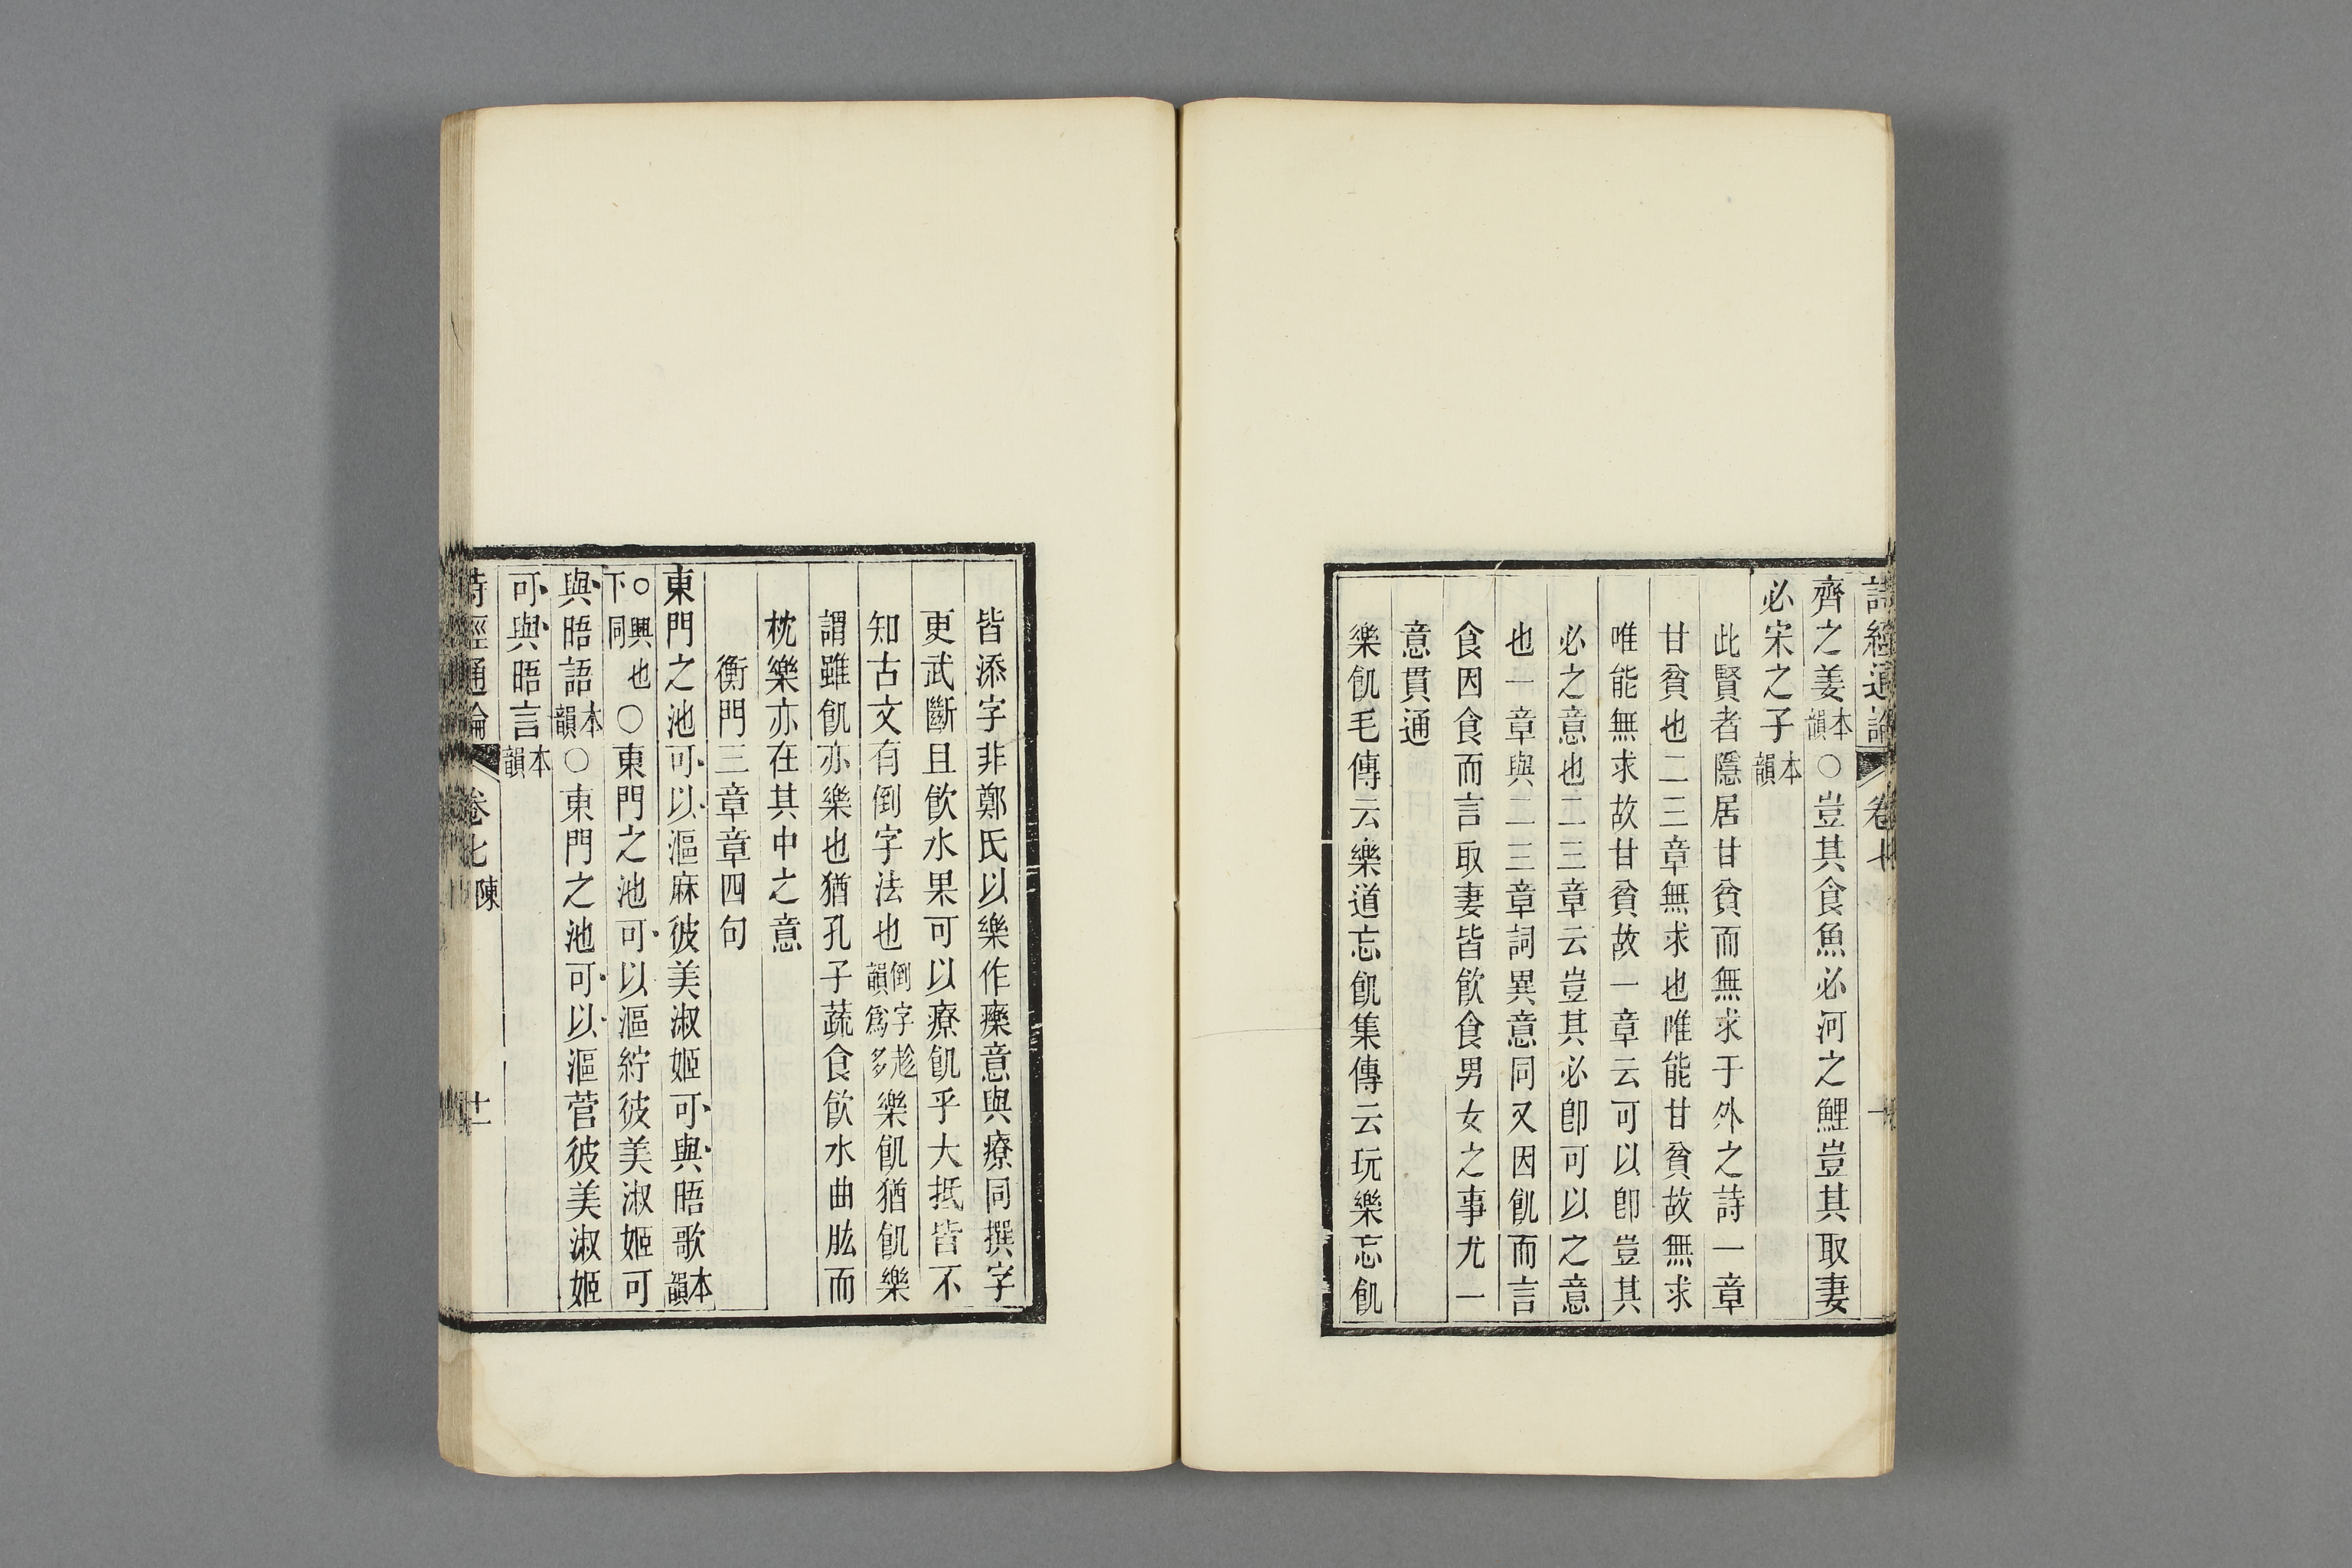 詩經通論 卷七
齊之姜本韻○豈其食魚必河之鯉豈其取妻
必宋之子本韻
此賢者隱居甘貧而無求于外之詩一章
甘貧也二三章無求也唯能甘貧故無求
唯能無求故甘貧故一章云可以卽豈其
必之意也二三章云豈其必卽可以之意
也一章與二三章詞異意同又因飢而言
食因食而言取妻皆飲食男女之事尤一
意貫通
樂飢毛傳云樂道忘飢集傳云玩樂忘飢
皆添字非鄭氏以樂作𤻲意與療同撰字
更武斷且飲水果可以療飢乎大抵皆不
知古文有倒字法也倒字趁韻爲多樂飢猶飢樂
謂雖飢亦樂也猶孔子蔬食飮水曲肱而
枕樂亦在其中之意
衡門三章章四句
東門之池可以漚麻彼美淑姬可與晤歌本韻
○興也下同○東門之池可以漚紵彼美淑姬可
與晤語本韻○東門之池可以漚菅彼美淑姬
可與晤言本韻
詩經通論 卷七 陳 十一